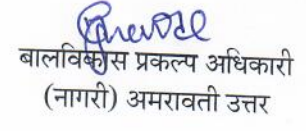 बालविकास प्रकल्प अधिकारी
(नागरी) अमरावती उत्तर